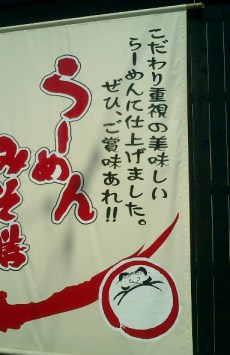 こだわり重視の美味しい
らーめんに仕上げました。
ぜひ、ご賞味あれ!!
らーめん
みそ膳